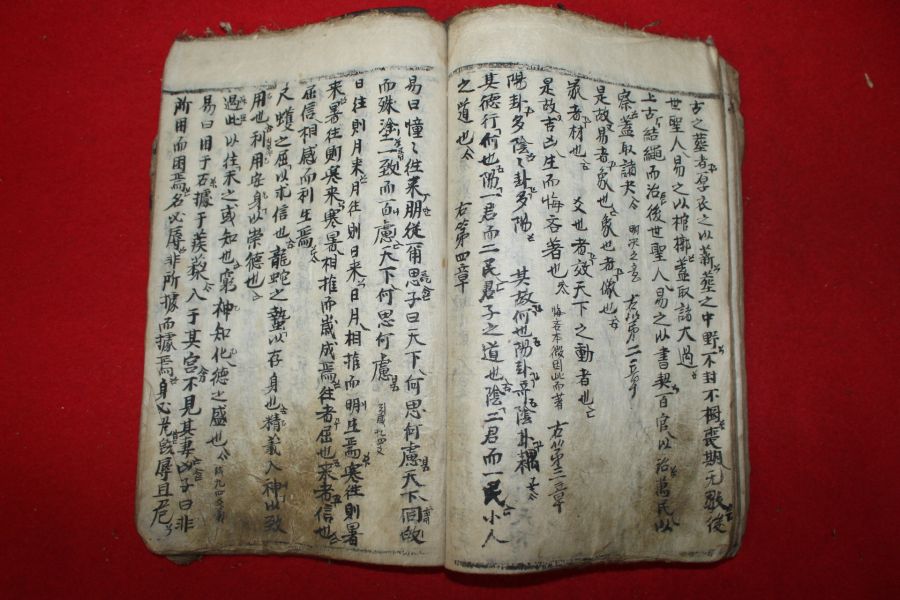 古之葬者厚衣之以薪葬之中野不封不樹喪期无數後
世聖人易之以棺槨盖取諸大過
上古結繩而治後世聖人易之以書契百官以治萬民以
察盖取諸夬 明決之意 右第二章
是故易者象也象也者像也
彖者材也 爻也者效天下之動者也
是故吉凶生而悔吝著也 悔吝本微因此而著 右第三章
陽卦多陰〻卦多陽 其故何也陽卦奇陰卦耦
其德行何也陽一君而二民君子之道也陰二君而一民小人
之道也 右第四章
易曰憧〻往來朋從爾思子曰天下何思何慮天下同歸
而殊塗一致而百慮天下何思何慮 引咸九四爻
日往則月來月往則日來日月相推而明生焉寒往則暑
來暑往則寒來寒暑相推而歲成焉往者屈也來者信也
屈信相感而利生焉
尺蠖之屈以求信也龍蛇之蟄以存身也精義入神以致
用也利用安身以崇德也
過此以往未之或知也窮神知化德之盛也 九四爻
易曰困于石據于蒺藜入于其宮不見其妻凶子曰非
所困而困焉名必辱非所據而據焉身必危旣辱且危